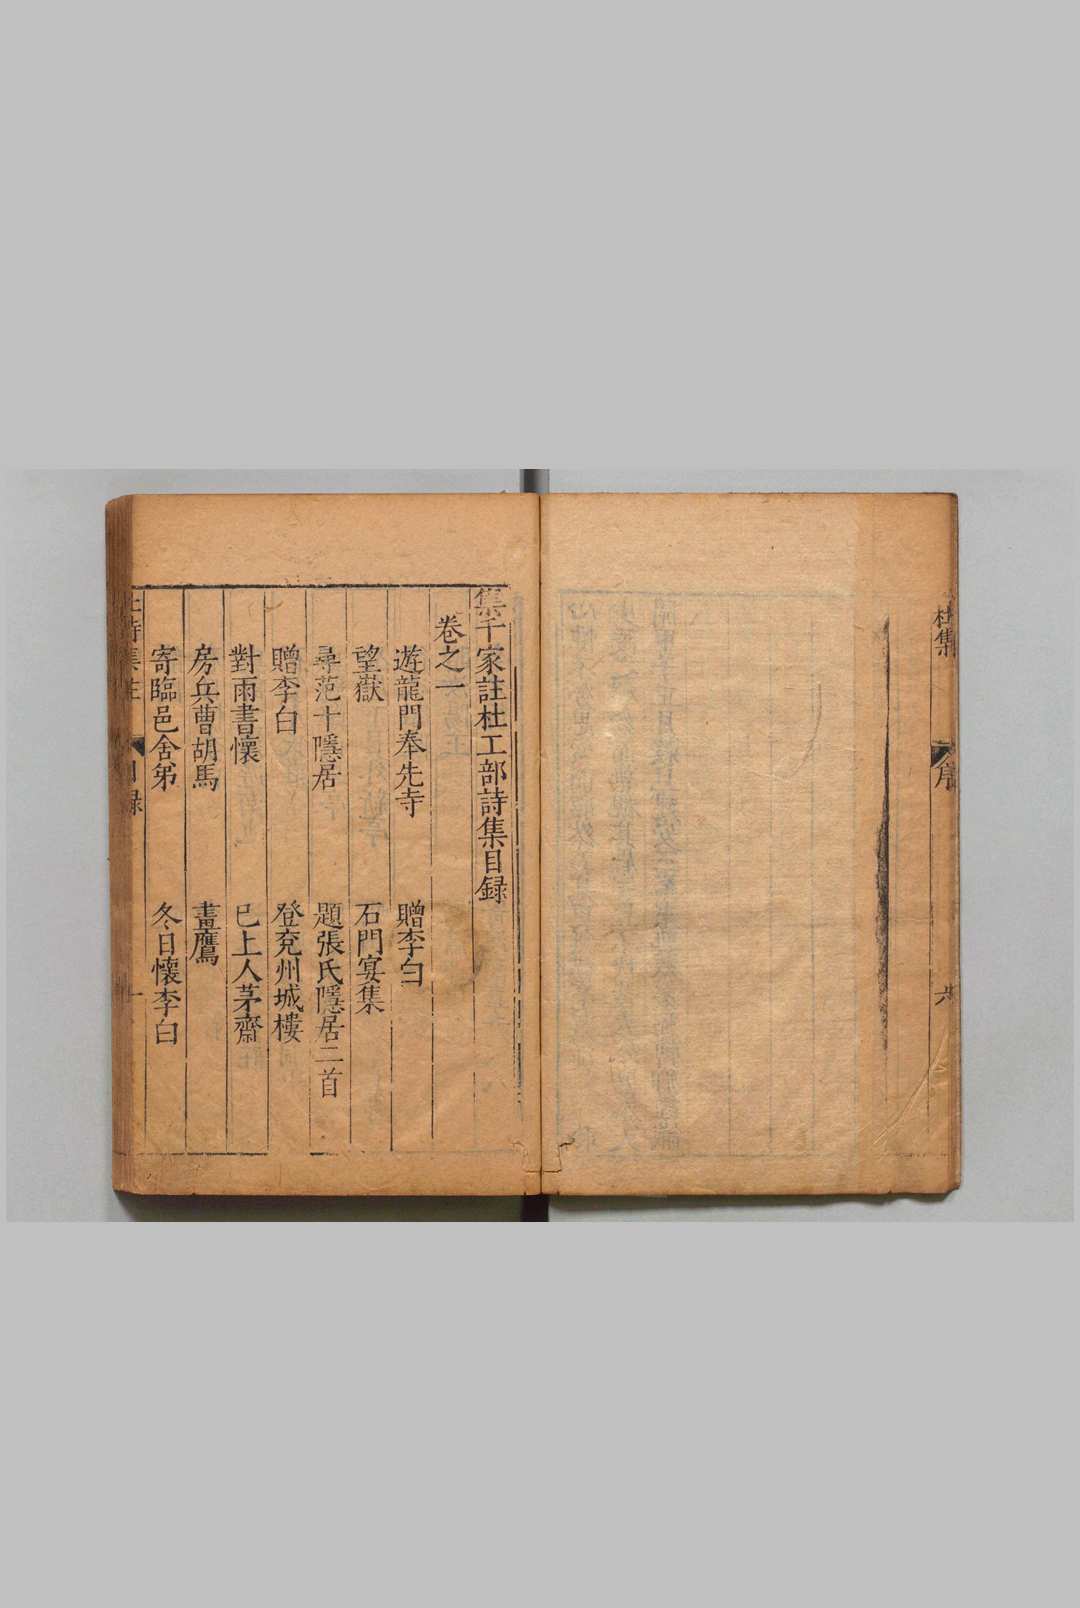 杜集
序
六
集千家註杜工部詩集目録
卷之一
遊龍門奉先寺 贈李白
望嶽 石門宴集
尋范十隱居 題張氏隱居二首
贈李白 登兖州城樓
對雨書懷 巳上人茅齋
房兵曹胡馬 畫鷹
寄臨邑舍弟 冬日懷李白
目録
一